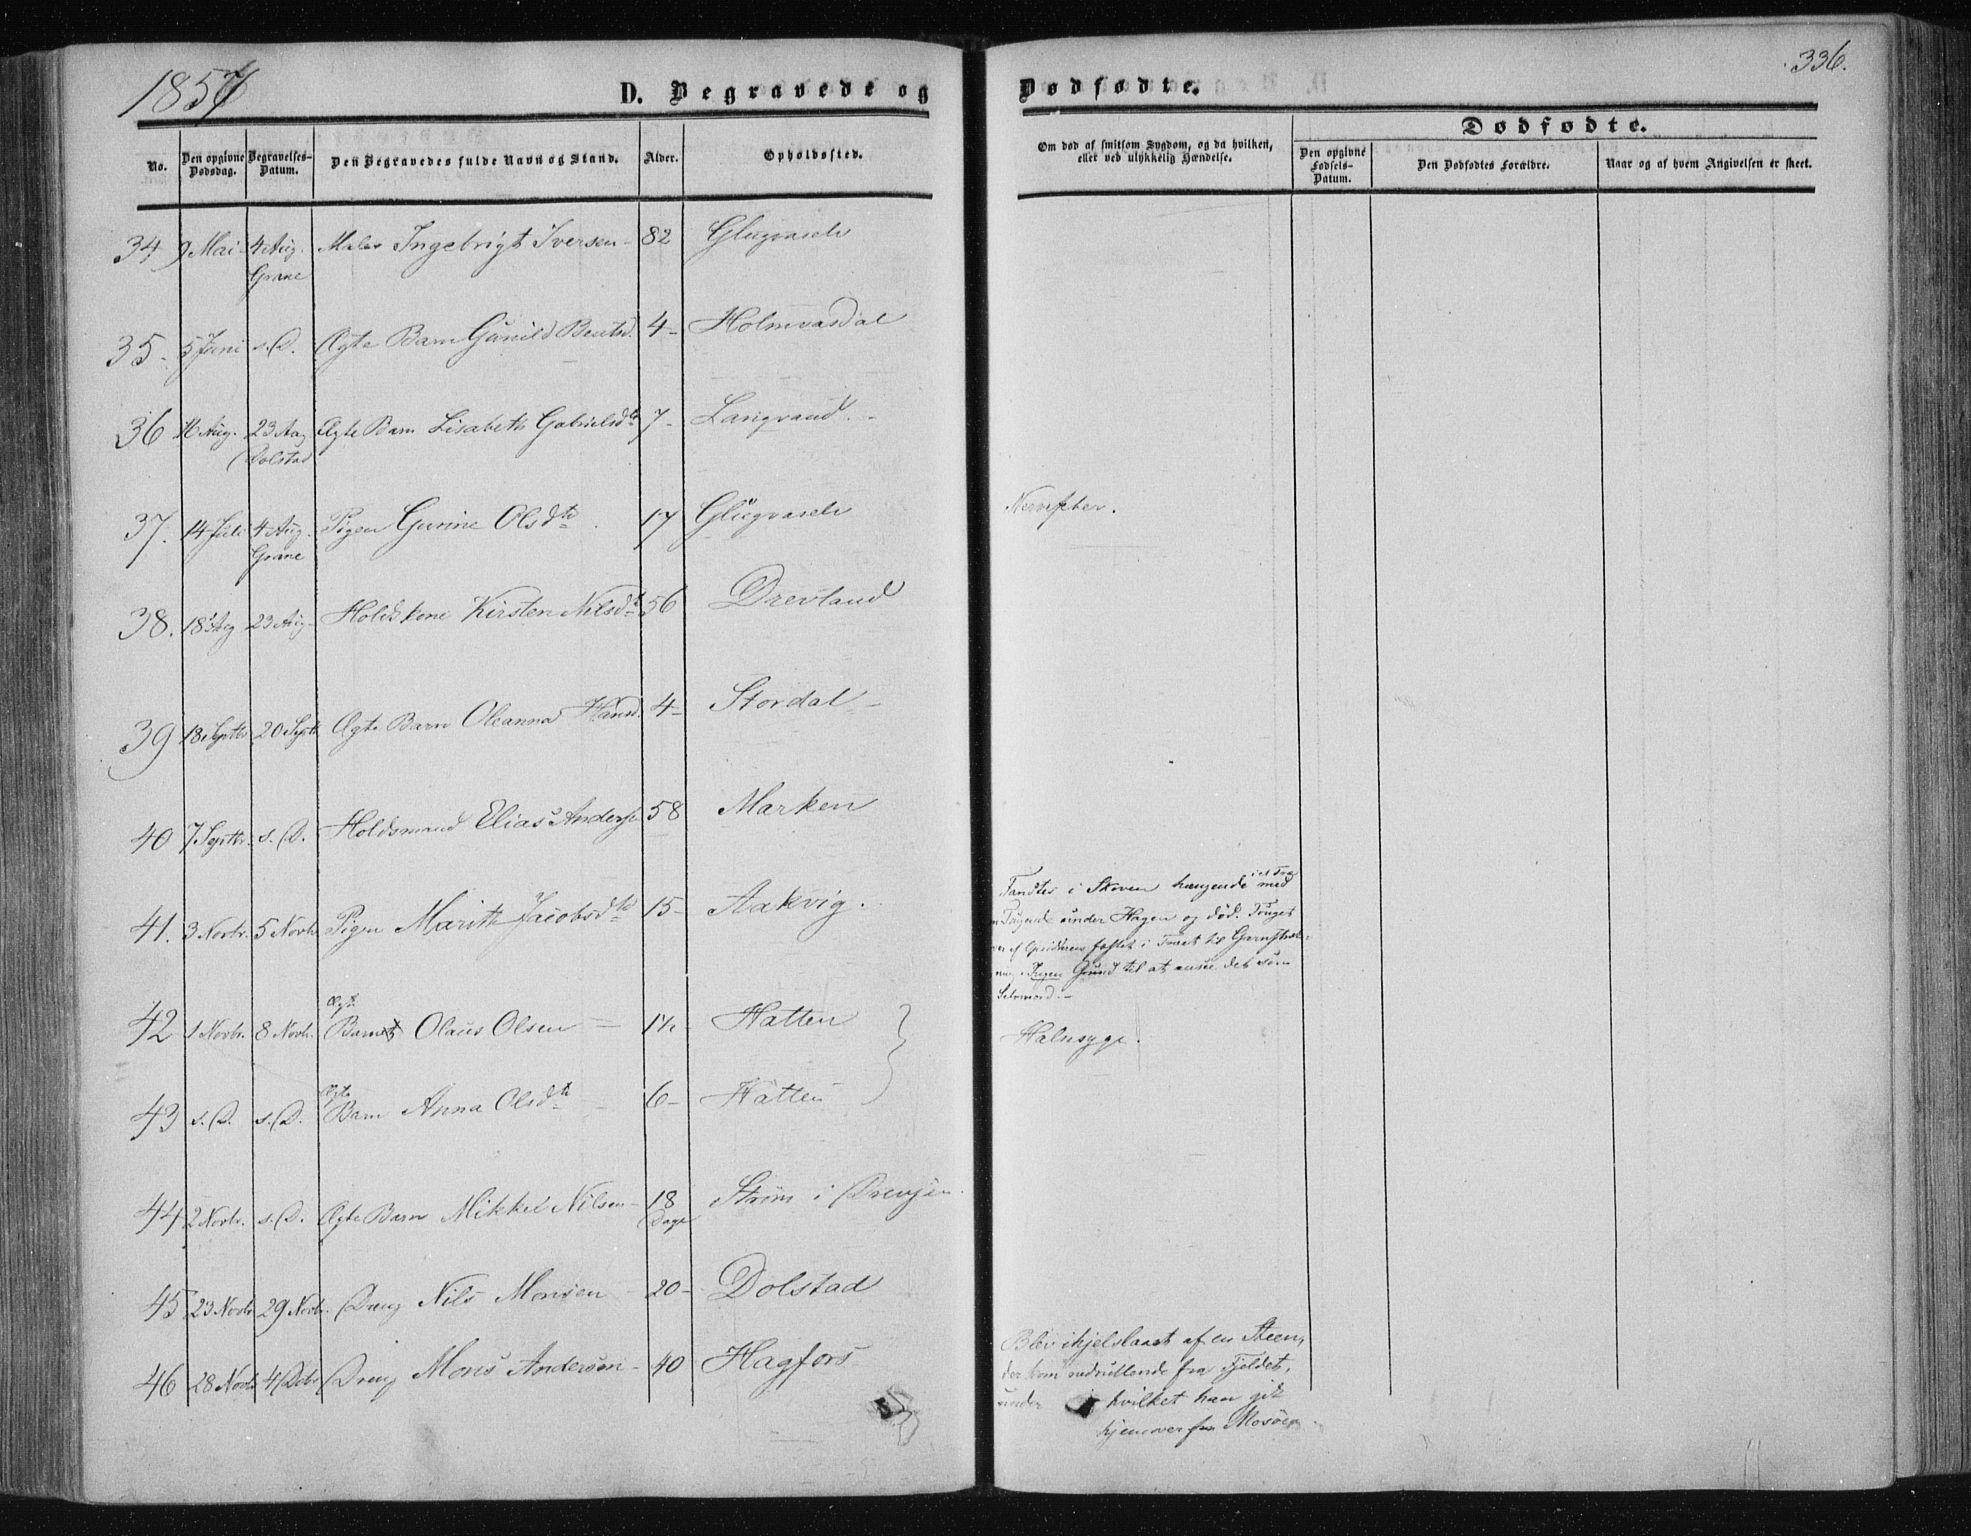 1857
336.
D. Begravede og Dødfødte.
No.
Den opgivne Dødsdag.
Begravelses-Datum.
Den Begravedes fulde Navn og Stand.
Alder.
Opholdssted.
Om død af smitsom Sygdom, og da hvilken, eller ved ulykkelig Hændelse.
Dødfødte.
Den opgivne Fødsels-Datum.
Den Dødfødtes Forældre.
Naar og af hvem Angivelsen er skeet.
34 9 Mai 4 Aug. Ingebrigt Iversen - 82
Grane
35. 5 Juni s. D. Ægte Barn Gunild Bentsd. 4 - Holmvasdal
36 16 Aug. 23 Aug Ægte Barn Lisabeth Gabrielsdtr 7 - Langvand. -
Dolstad
37. 14 Juli 4 Aug. Pigen Gurine Olsdtr 17
Grane
38. 18 Aug 23 Aug - Holdskone Kirsten Nilsdtr 56 Drevland
39 18 Septbr 20 Septb Ægte Barn Oleanna Hansd. 4 - Stordal -
40 7 Septbr. s. D. Holdsmand Elias Anders 58 Marken
41. 3 Novbr. 5 Novbr Pigen Marith Jacobsdtr 15 - Aakvig.
Fandtes i Skoven hængende i et Træ med
under Hagen og død. Touget
fæstet i Træet til
Ingen Grund til at ansee det som
Selvmord. -
42 1 Novbr. 8 Novbr. Ægte Barn Olaus Olsen - 1½ - Hatten
Halssyge.
43 s. D. s. D. Ægte Barn Anna Olsdtr - 6 - Hatten
44 2 Novbr. s. D. Ægte Barn Mikkel Nilsen - 18 Strøm i Drevjen.
Dage
45 23 Novbr 29 Novbr. Dreng Nils Monsen 20 - Dolstad
46 28 Novbr 4 Decbr Dreng Mons Andersen - 40 Hagfors
Blev ihjelslaaet af en Steen,
der kom nedrullende fra Fjeldet,
under hvilket han gik
hjemover fra Mosøen